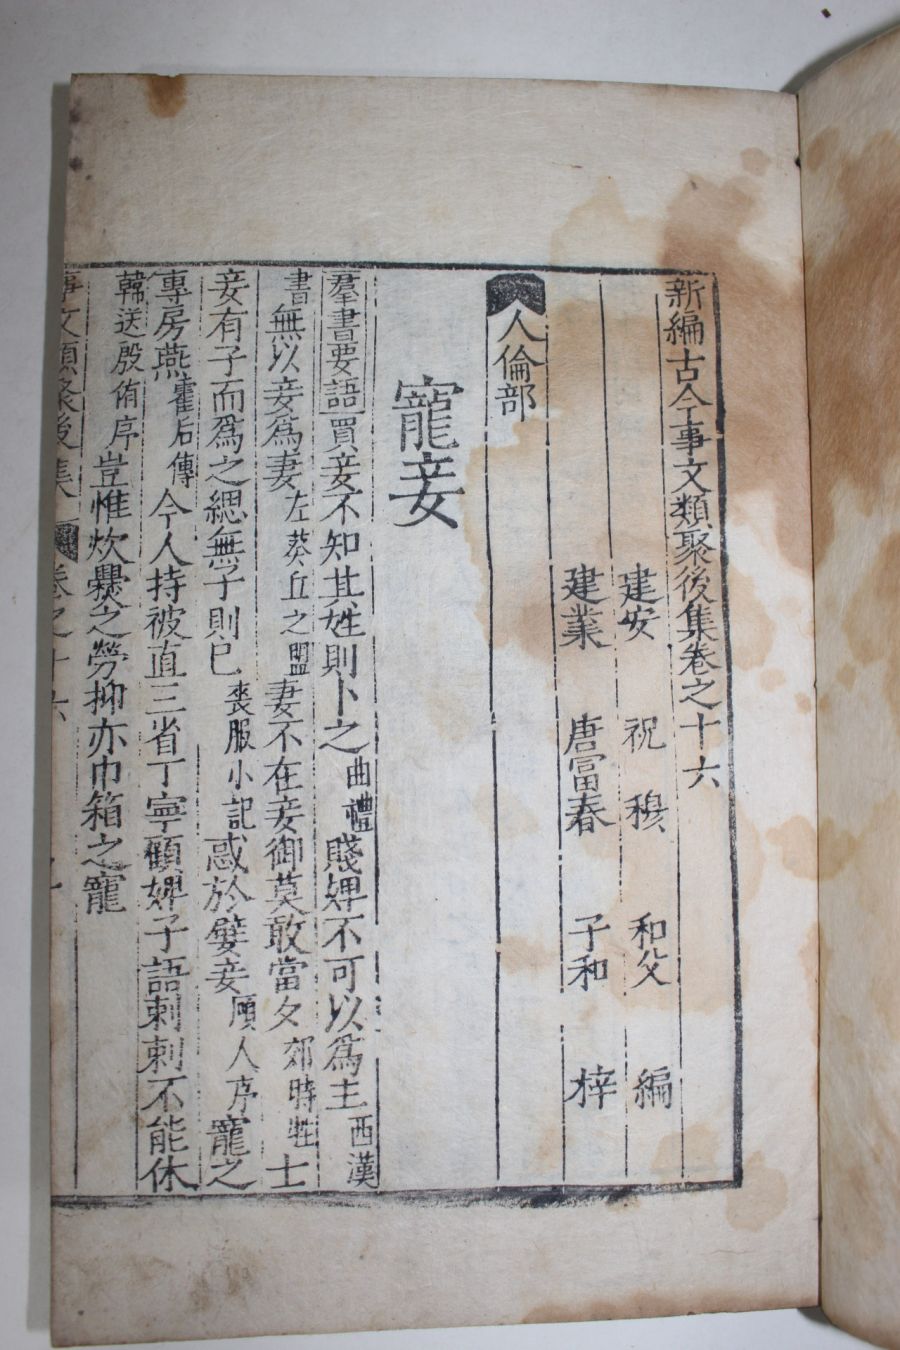 新編古今事文類聚後集卷之十六
建安 祝穆 和父 編
建業 唐富春 子和 梓
人倫部
寵妾
羣書要語買妾不知其姓則卜之曲禮賤婢不可以爲主西漢
書無以妾爲妻左葵丘之盟妻不在妾御莫敢當夕郊時牲士
妾有子而爲之緦無子則已喪服小記惑於嬖妾頎人序寵之
專房燕霍后傳今人持被直三省丁寧顧婢子語刺刺不能休
韓送殷侑序豈惟炊爨之勞抑亦巾箱之寵
事文類聚後集 卷之十六